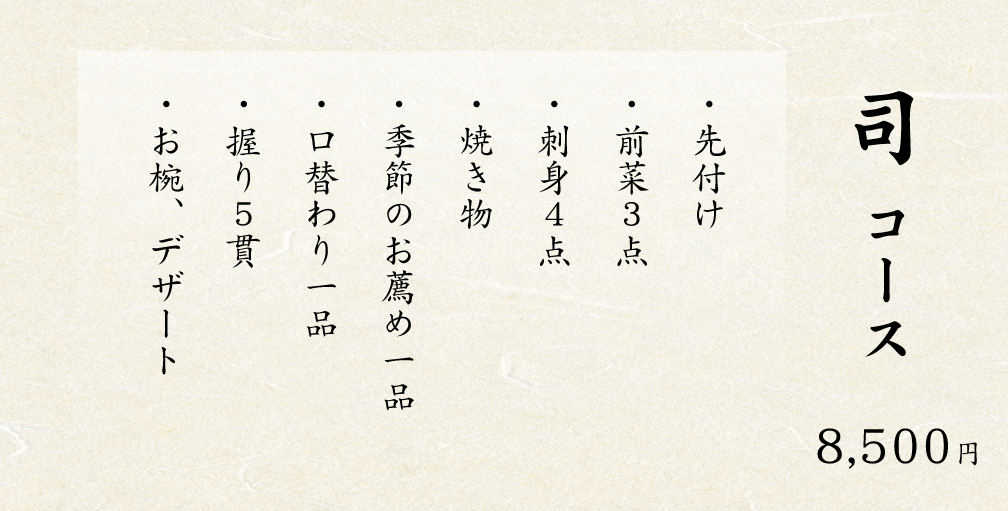 司 コース
8,500円
・先付け
・前菜３点
・刺身４点
・焼き物
・季節のお薦め一品
・口替わり一品
・握り５貫
・お椀、デザート